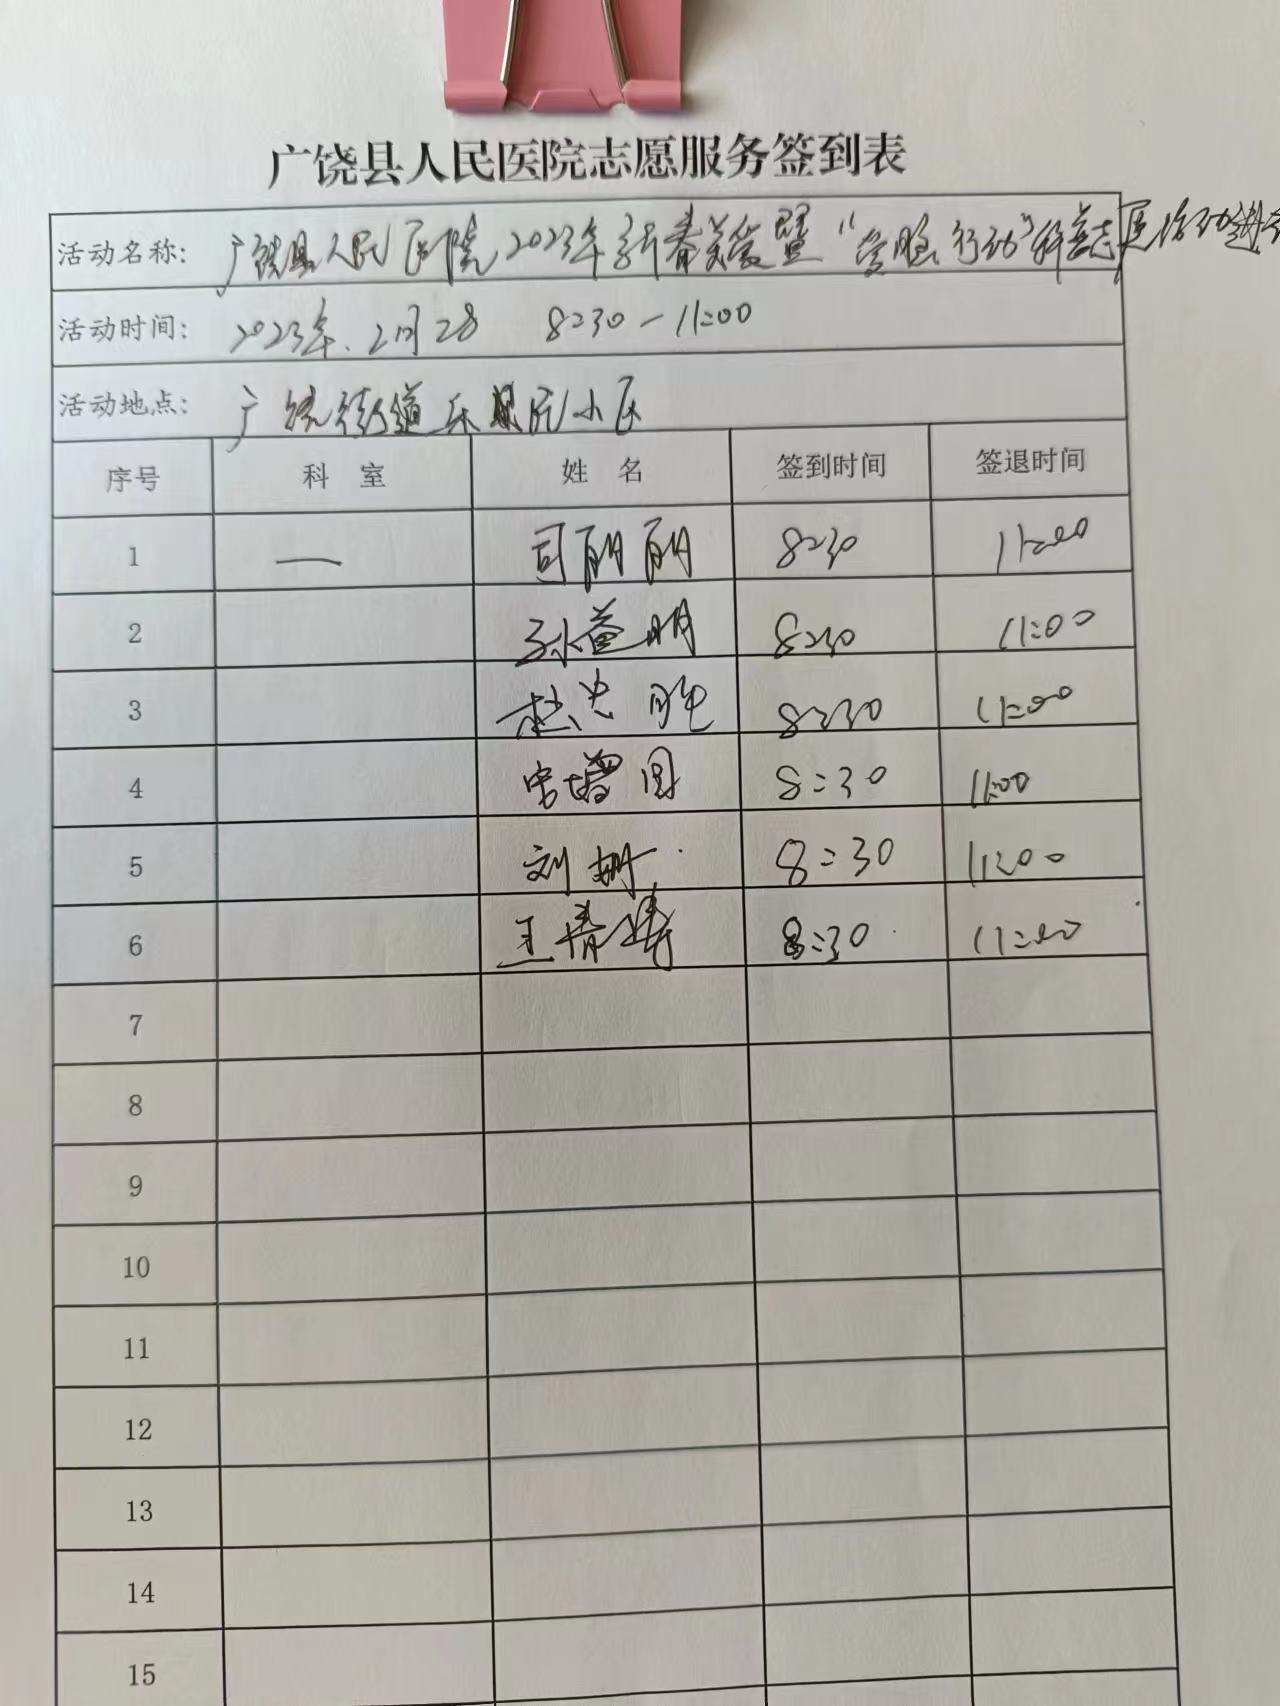 广饶县人民医院志愿服务签到表
活动名称: 广饶县人民医院2023年新春关爱暨“营胞行动”科普志愿活动进
活动时间: 2023年.2月28 8:30-11:00
活动地点: 广饶街道乐小区
序号 科 室 姓 名 签到时间 签退时间
1 — 司朋朋 8:30 11:00
2 孙益明 8:30 11:00
3 8:30 11:00
4 宋增国 8:30 11:00
5 刘姗 8:30 11:00
6 王倩涛 8:30 11:00
7
8
9
10
11
12
13
14
15